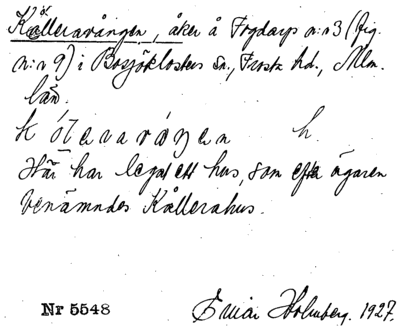 Kålleravången, åker å Fogdarp n:r 3 (fig.
n:r 9) i Bosjöklosters sn., Frosta hd., Mlm.
län.
h.
Här har legat ett hus, som efter ägaren
benämndes Kållerahus.
Nr 5548 Einar Holmberg. 1927.